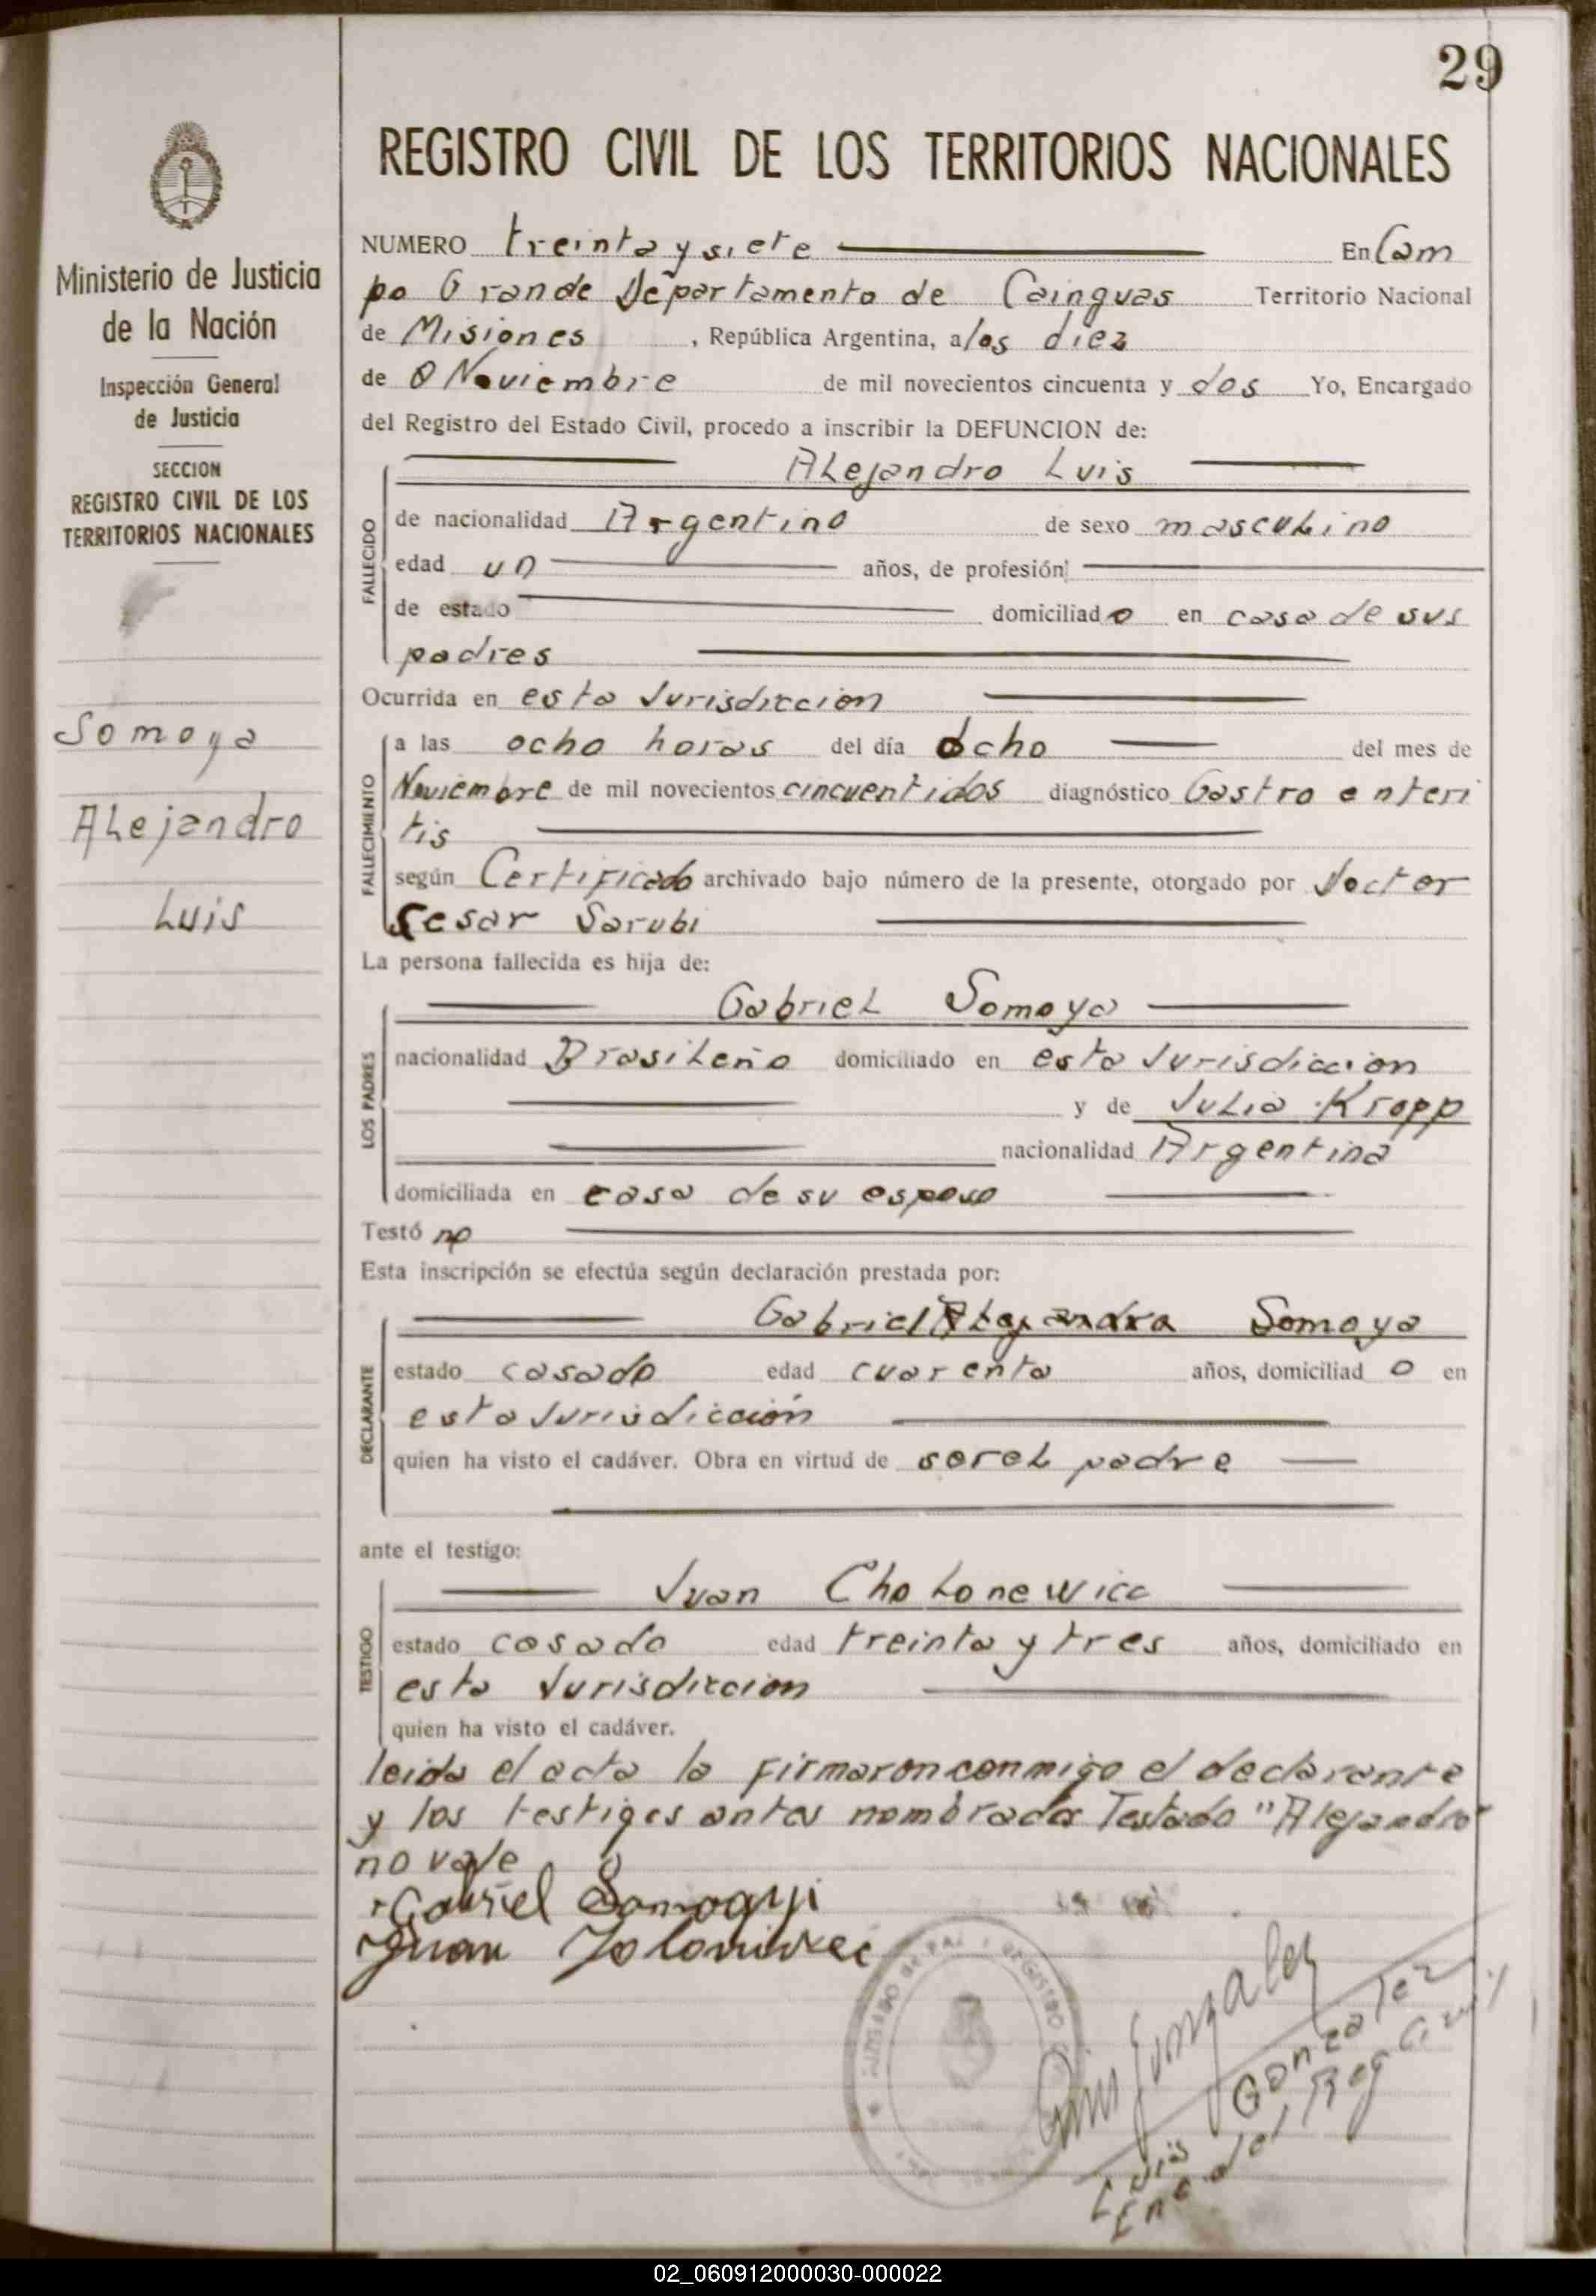 29
REGISTRO CIVIL DE LOS TERRITORIOS NACIONALES
Ministerio de Justicia
de la Nación
Inspección General
de Justicia
SECCION
REGISTRO CIVIL DE LOS
TERRITORIOS NACIONALES
Somoya
Alejandro
Luis
NUMERO treinta y siete En Cam
po Grande Departamento de Cainguas Territorio Nacional
de Misiones , República Argentina, a los diez
de Noviembre de mil novecientos cincuenta y dos Yo, Encargado
del Registro del Estado Civil, procedo a inscribir la DEFUNCION de:
Alejandro Luis
FALLECIDO
de nacionalidad Argentino de sexo masculino
edad un años, de profesión
de estado domiciliado en casa de sus
padres
Ocurrida en esta Jurisdiccion
FALLECIMIENTO
a las ocho horas del día ocho del mes de
Noviembre de mil novecientos cincuentidos diagnóstico Gastro enteri
tis
según Certificado archivado bajo número de la presente, otorgado por Doctor
Cesar Sarubi
La persona fallecida es hija de:
LOS PADRES
Gabriel Somoya
nacionalidad Brasileño domiciliado en esta Jurisdiccion
y de Julia Kropp
nacionalidad Argentina
domiciliada en casa de su esposo
Testó no
Esta inscripción se efectúa según declaración prestada por:
DECLARANTE
Gabriel Alejandro Somoya
estado casado edad cuarenta años, domiciliado en
esta Jurisdicción
quien ha visto el cadáver. Obra en virtud de ser el padre
ante el testigo:
TESTIGO
Juan Cholonewicc
estado casado edad treinta y tres años, domiciliado en
esta Jurisdiccion
quien ha visto el cadáver.
leida el acta la firmaron conmigo el declarante
y los testigos antes nombrados Testado "Alejandro"
no vale
Gabriel Somogyi
Juan
JUZGADO DE PAZ Y REGISTRO
Luis Gonzalez
Luis Gonzalez
Enc. del Reg Civil
02_060912000030-000022